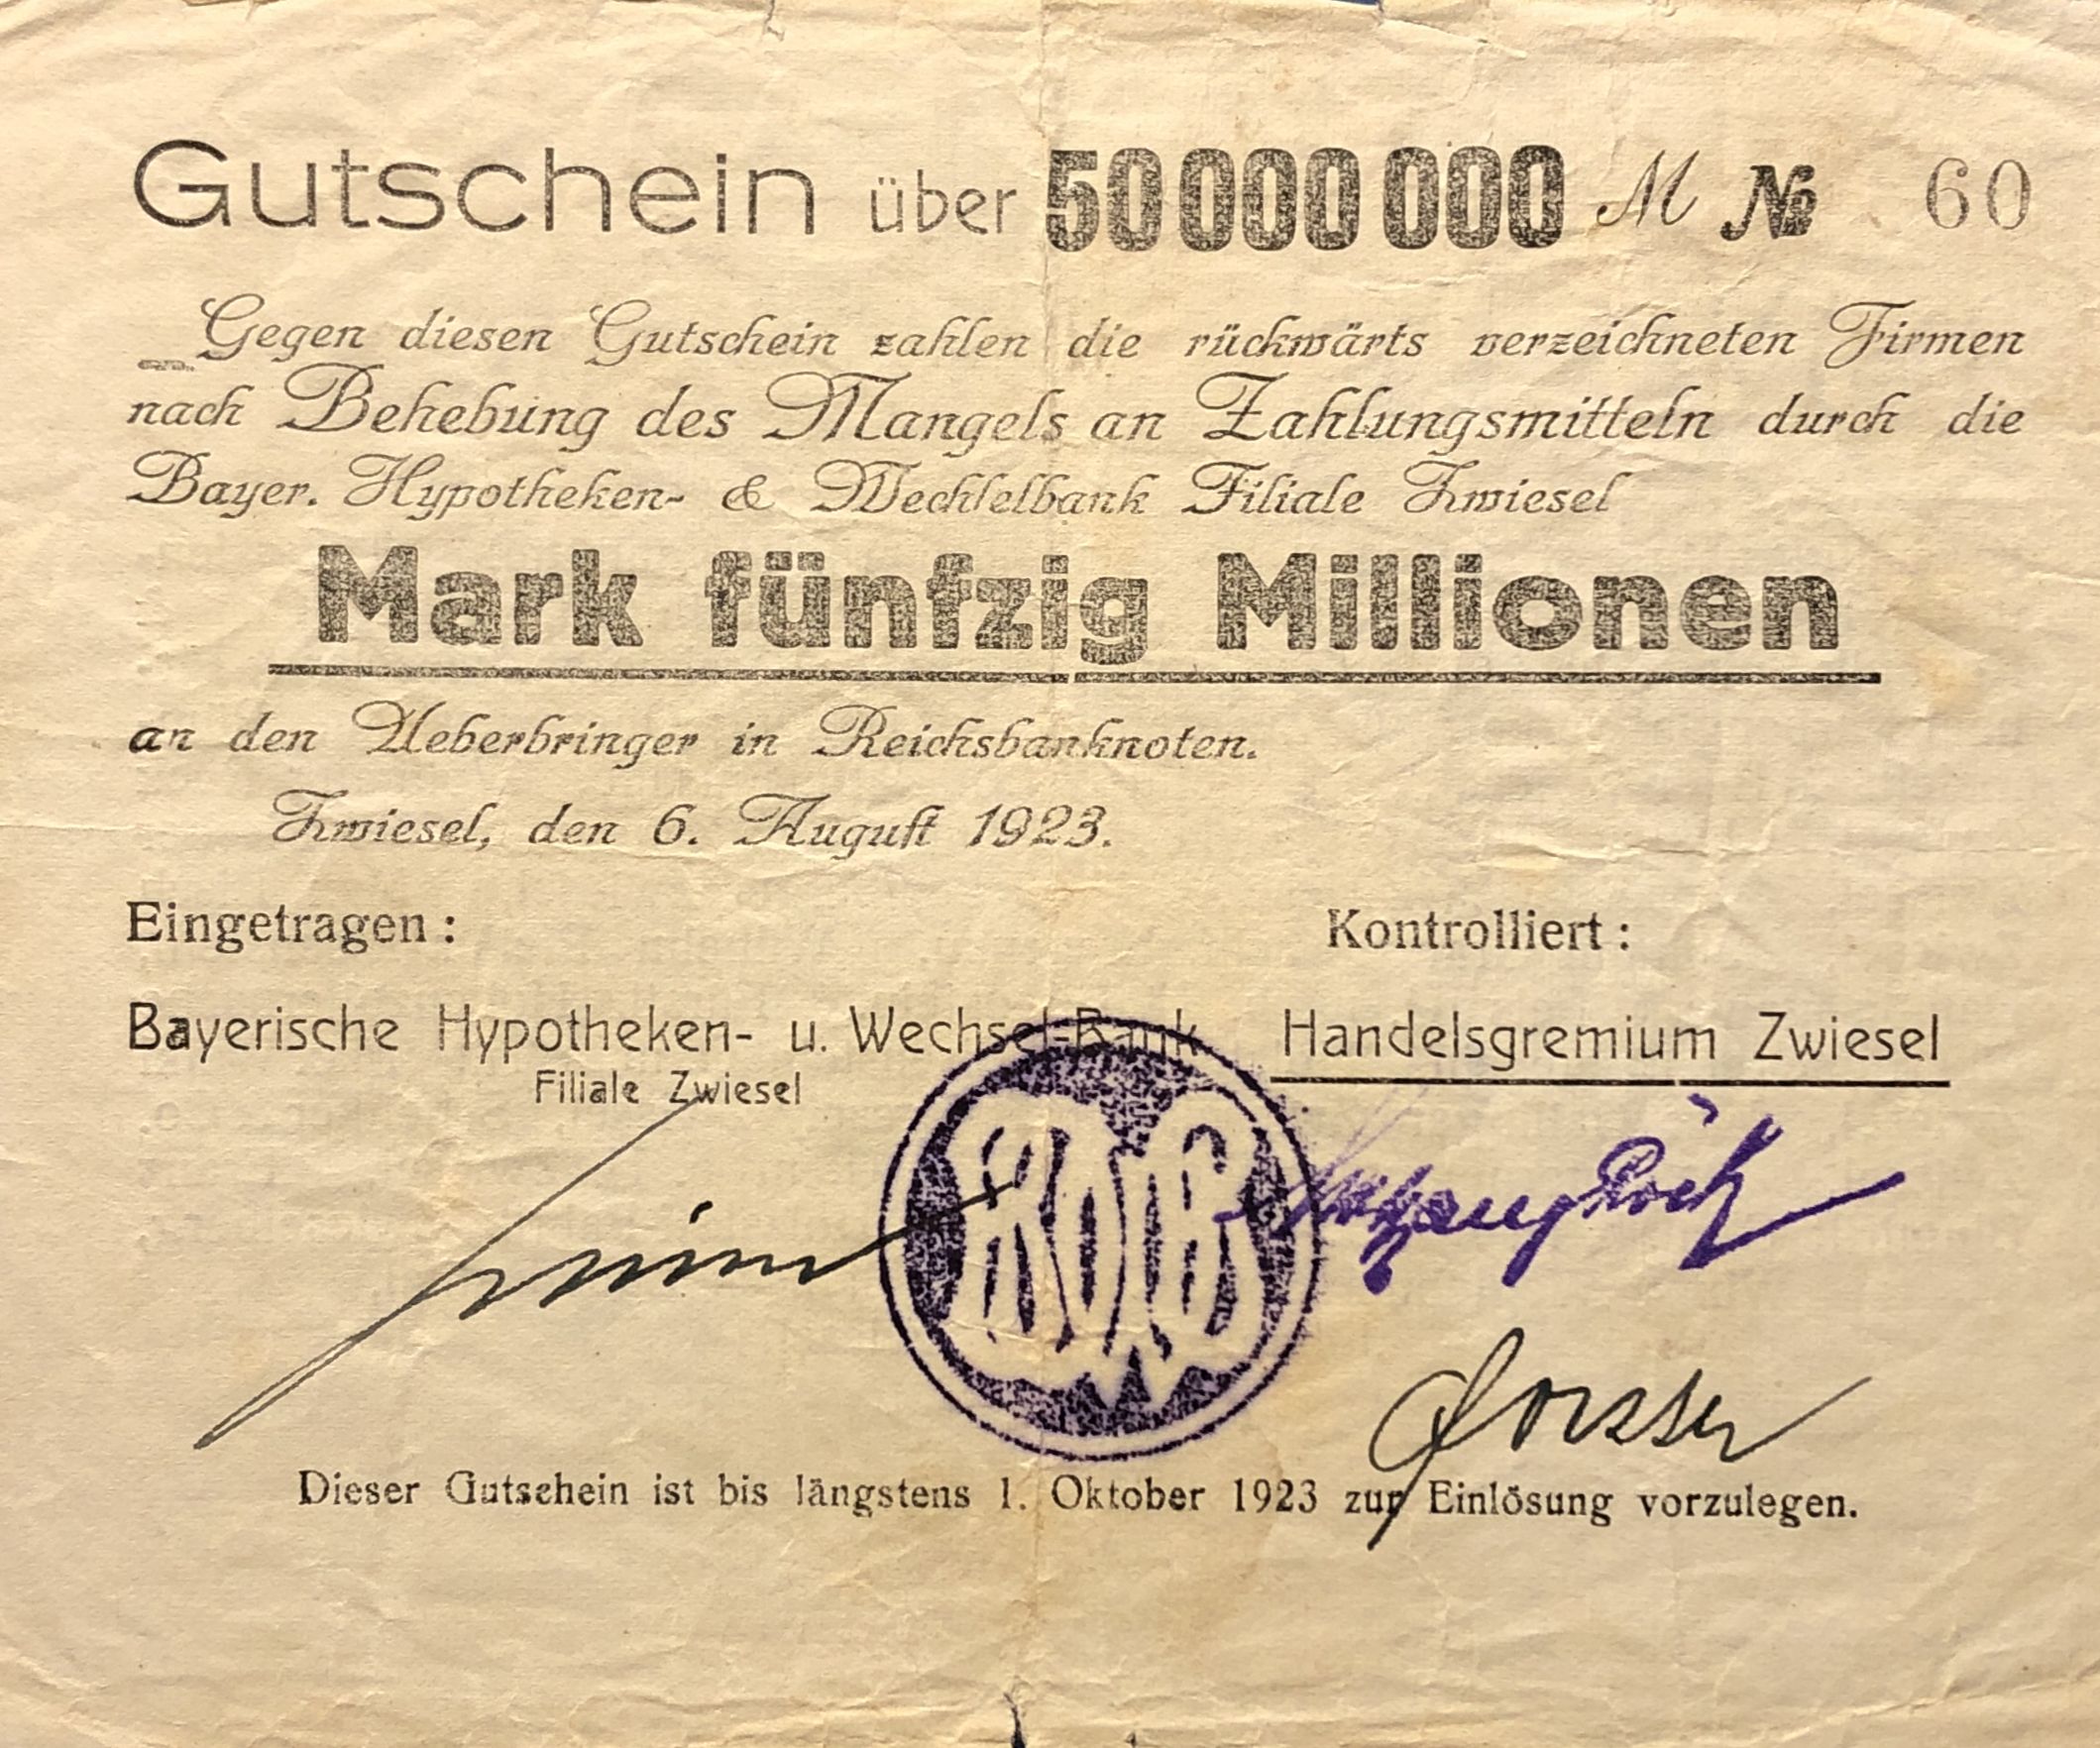 Gutschein über 50 000 000 M № 60
Gegen diesen Gutschein zahlen die rückwärts verzeichneten Firmen
nach Behebung des Mangels an Zahlungsmitteln durch die
Bayer. Hypotheken- & Wechſelbank Filiale Zwiesel
Mark fünfzig Millionen
an den Ueberbringer in Reichsbanknoten.
Zwiesel, den 6. Auguſt 1923.
Eingetragen :
Kontrolliert :
Bayerische Hypotheken- u. Wechsel-Bank
Filiale Zwiesel
Handelsgremium Zwiesel
Dieser Gutschein ist bis längstens 1. Oktober 1923 zur Einlösung vorzulegen.